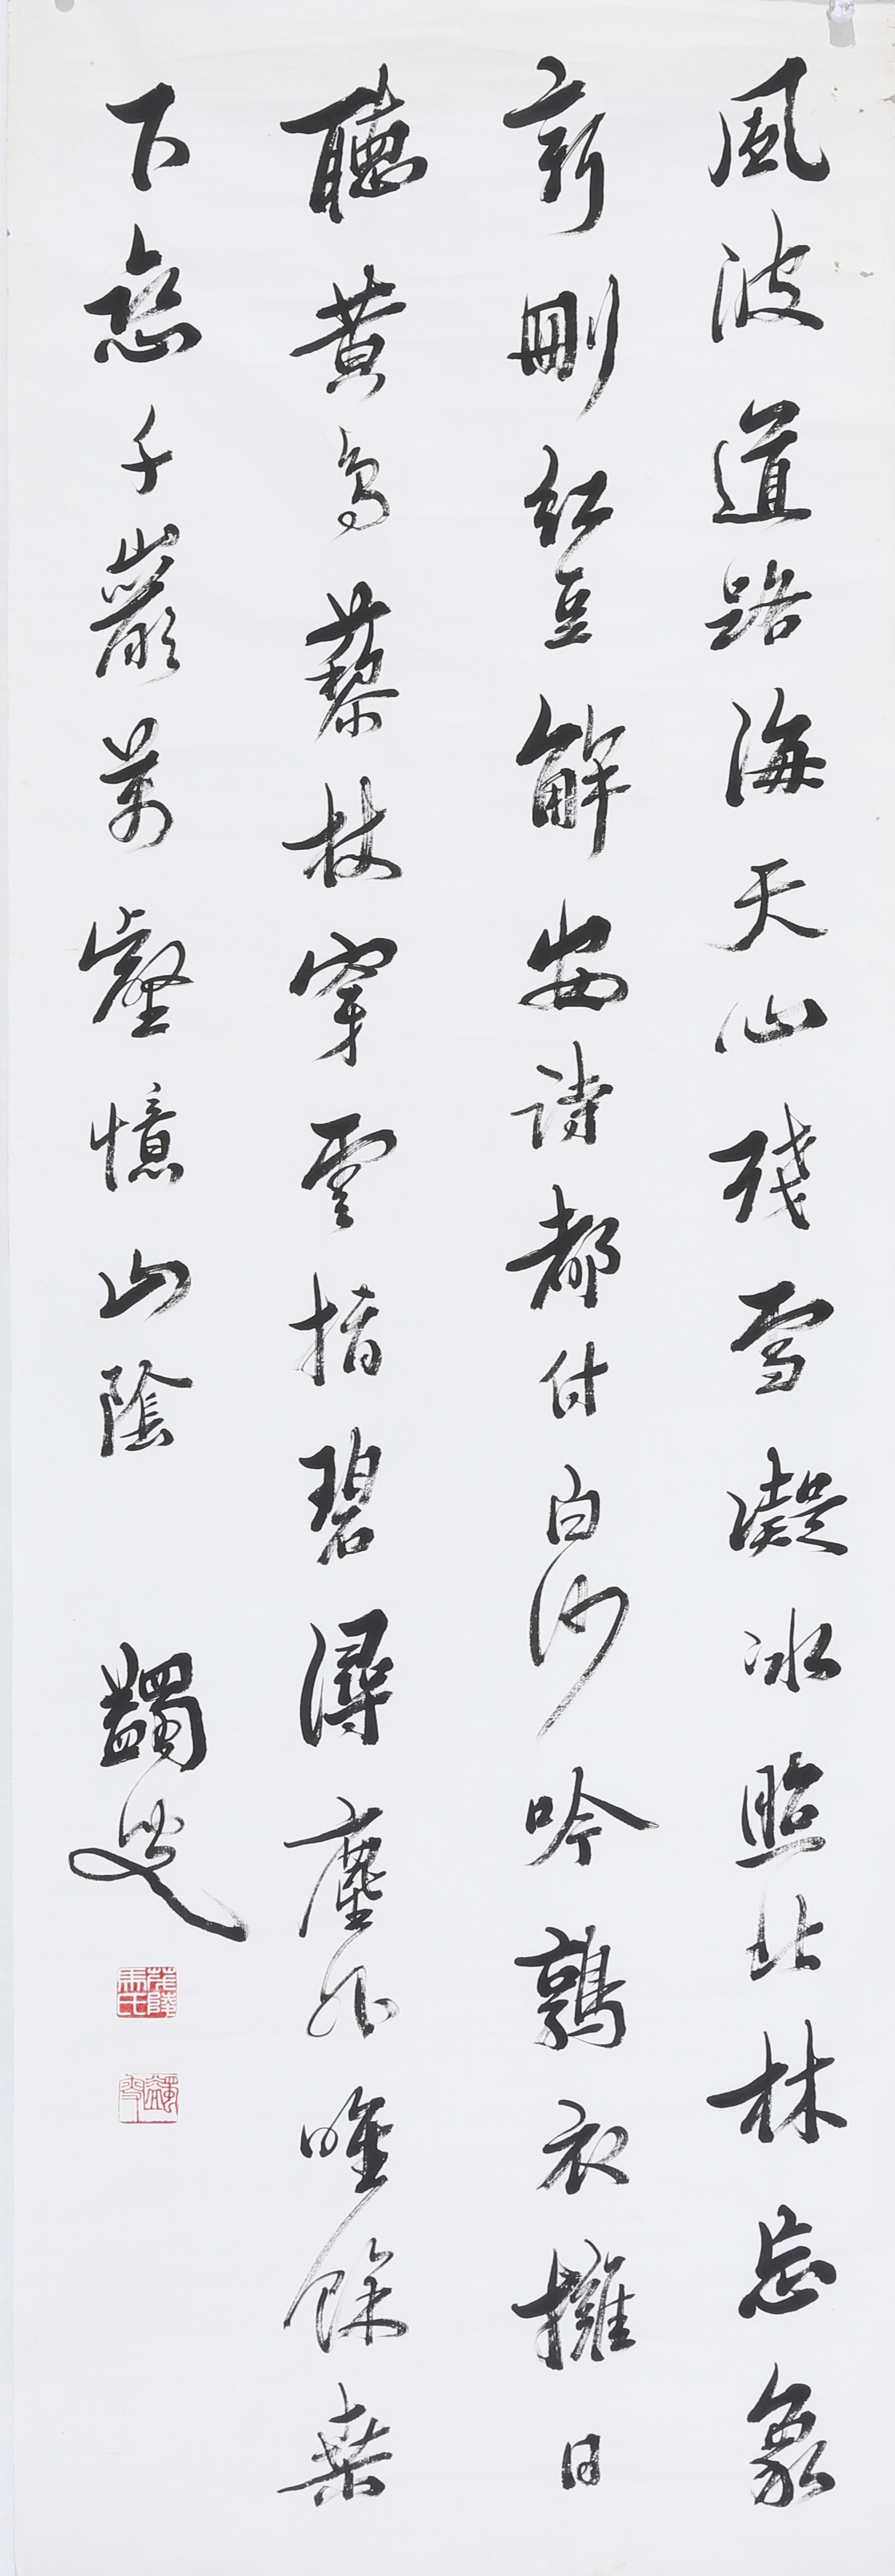 風波道路海天心殘雪凝冰照北林忘象
新刪紅豆解安詩都付白沙吟鶉衣擁日
聽黃鳥藜杖穿雲指碧潯塵外唯餘桑
下戀千巖萬壑憶山陰
蠲叟
茂陵馬氏
蠲叟